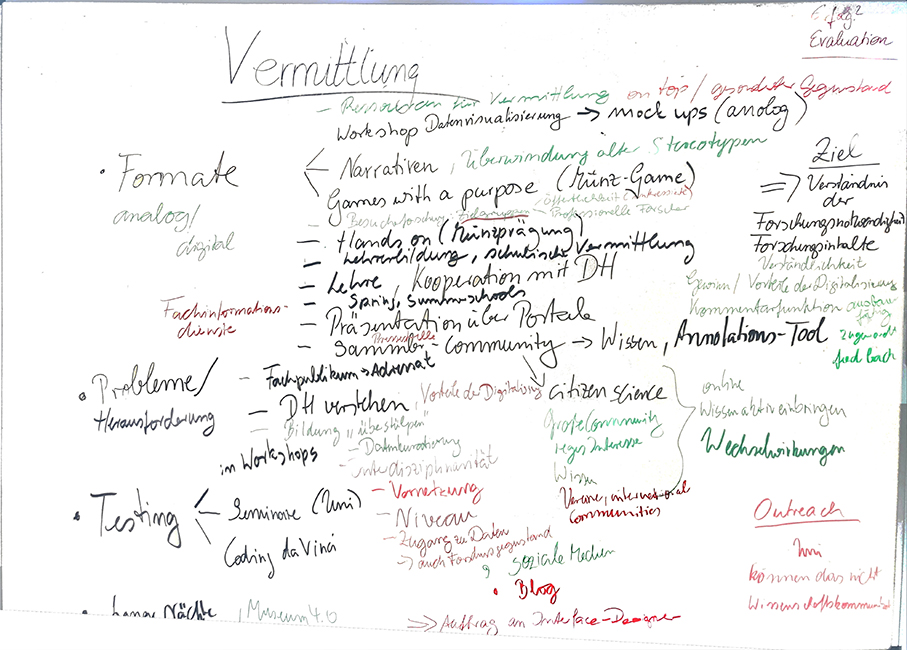 Evaluation
Vermittlung
- Ressourcen für Vermittlung on top / gesonderter Gegenstand
Workshop Datenvisualisierung → mock ups (analog)
• Formate
analog/
digital
Narrativen, Überwindung alter Stereotypen
Games with a purpose (Münz-Game)
- Besucherforschung - Zielgruppen - Öffentlichkeit
- Professionelle Forscher
- Hands on (Münzprägung)
- Lehrerbildung, schulische Vermittlung
- Lehre, Kooperation mit DH
- Spring, Summerschools
- Präsentation über Portale
Pressestelle
- Sammler-Community → Wissen, Annotations-Tool
Fachinformations-
dienste
Ziel
⇒ Verständnis
der
Forschungsnotwendigkeit
Forschungsinhalte
Verständlichkeit
Gewinn / Vorteile der Digitalisierung
Kommentarfunktion ausbau
fähig
feed back
• Probleme/
Herausforderung
- Fachpublikum → Adressat
- DH verstehen, Vorteile der Digitalisierung
- Bildung "überstülpen"
im Workshops
- Datenkuratierung
- interdisziplinarität
citizen science
Große Community
reges Interesse
Wissen
Vereine, international
Communities
online
Wissen aktiv einbringen
Wechselwirkungen
• Testing
Seminare (Uni)
Coding da Vinci
- Vernetzung
- Niveau
- Zugang zu Daten
→ auch Forschungsgegenstand
soziale Medien
• Blog
Outreach
Uni
können das nicht
• Lange Nächte, Museum 4.0
⇒ Auftrag an Interface-Designer